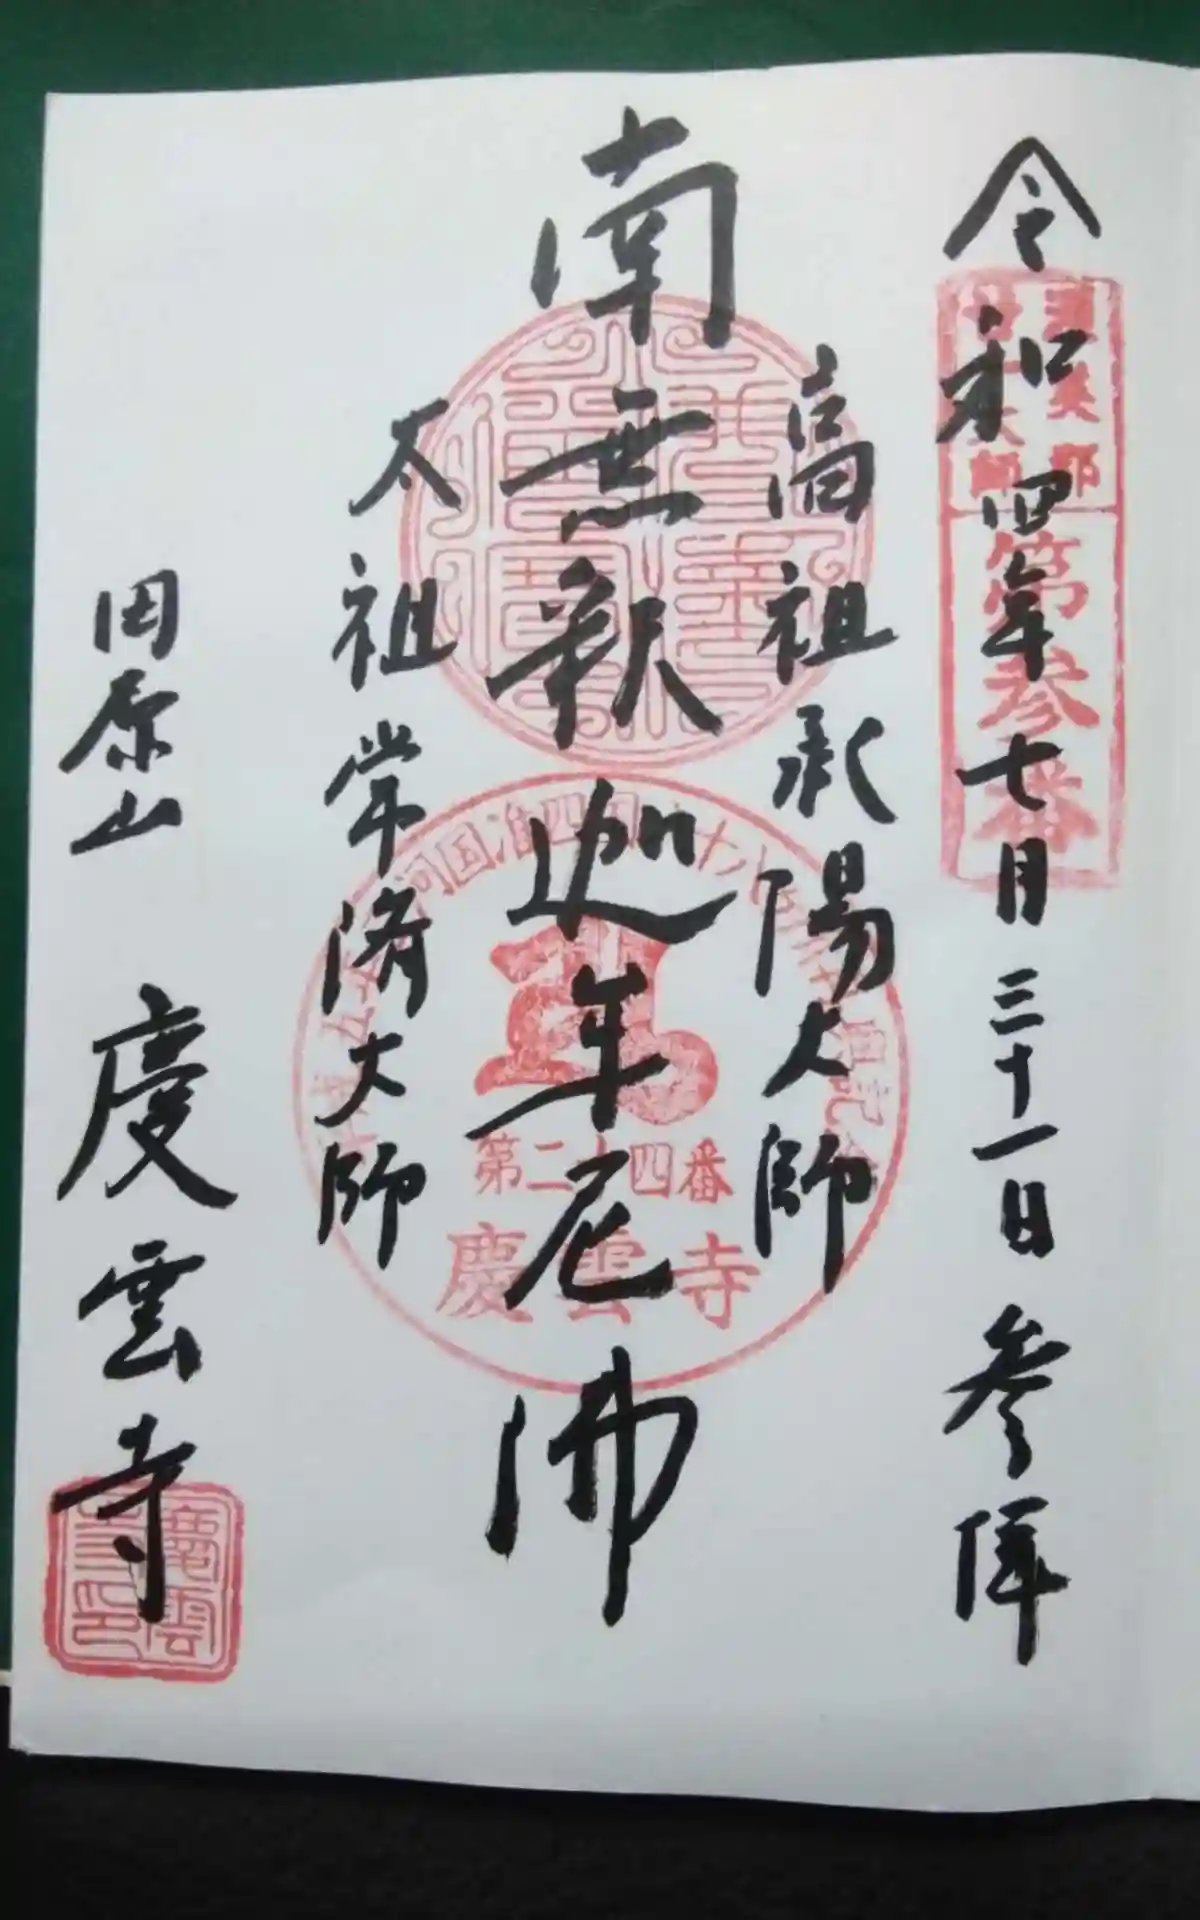 令和四年七月三十一日 参拝
高祖承陽大師
南無釈迦牟尼佛
太祖常済大師
田原山 慶雲寺
渥美郡
大師
第参番
第二十四番
慶雲寺
慶雲